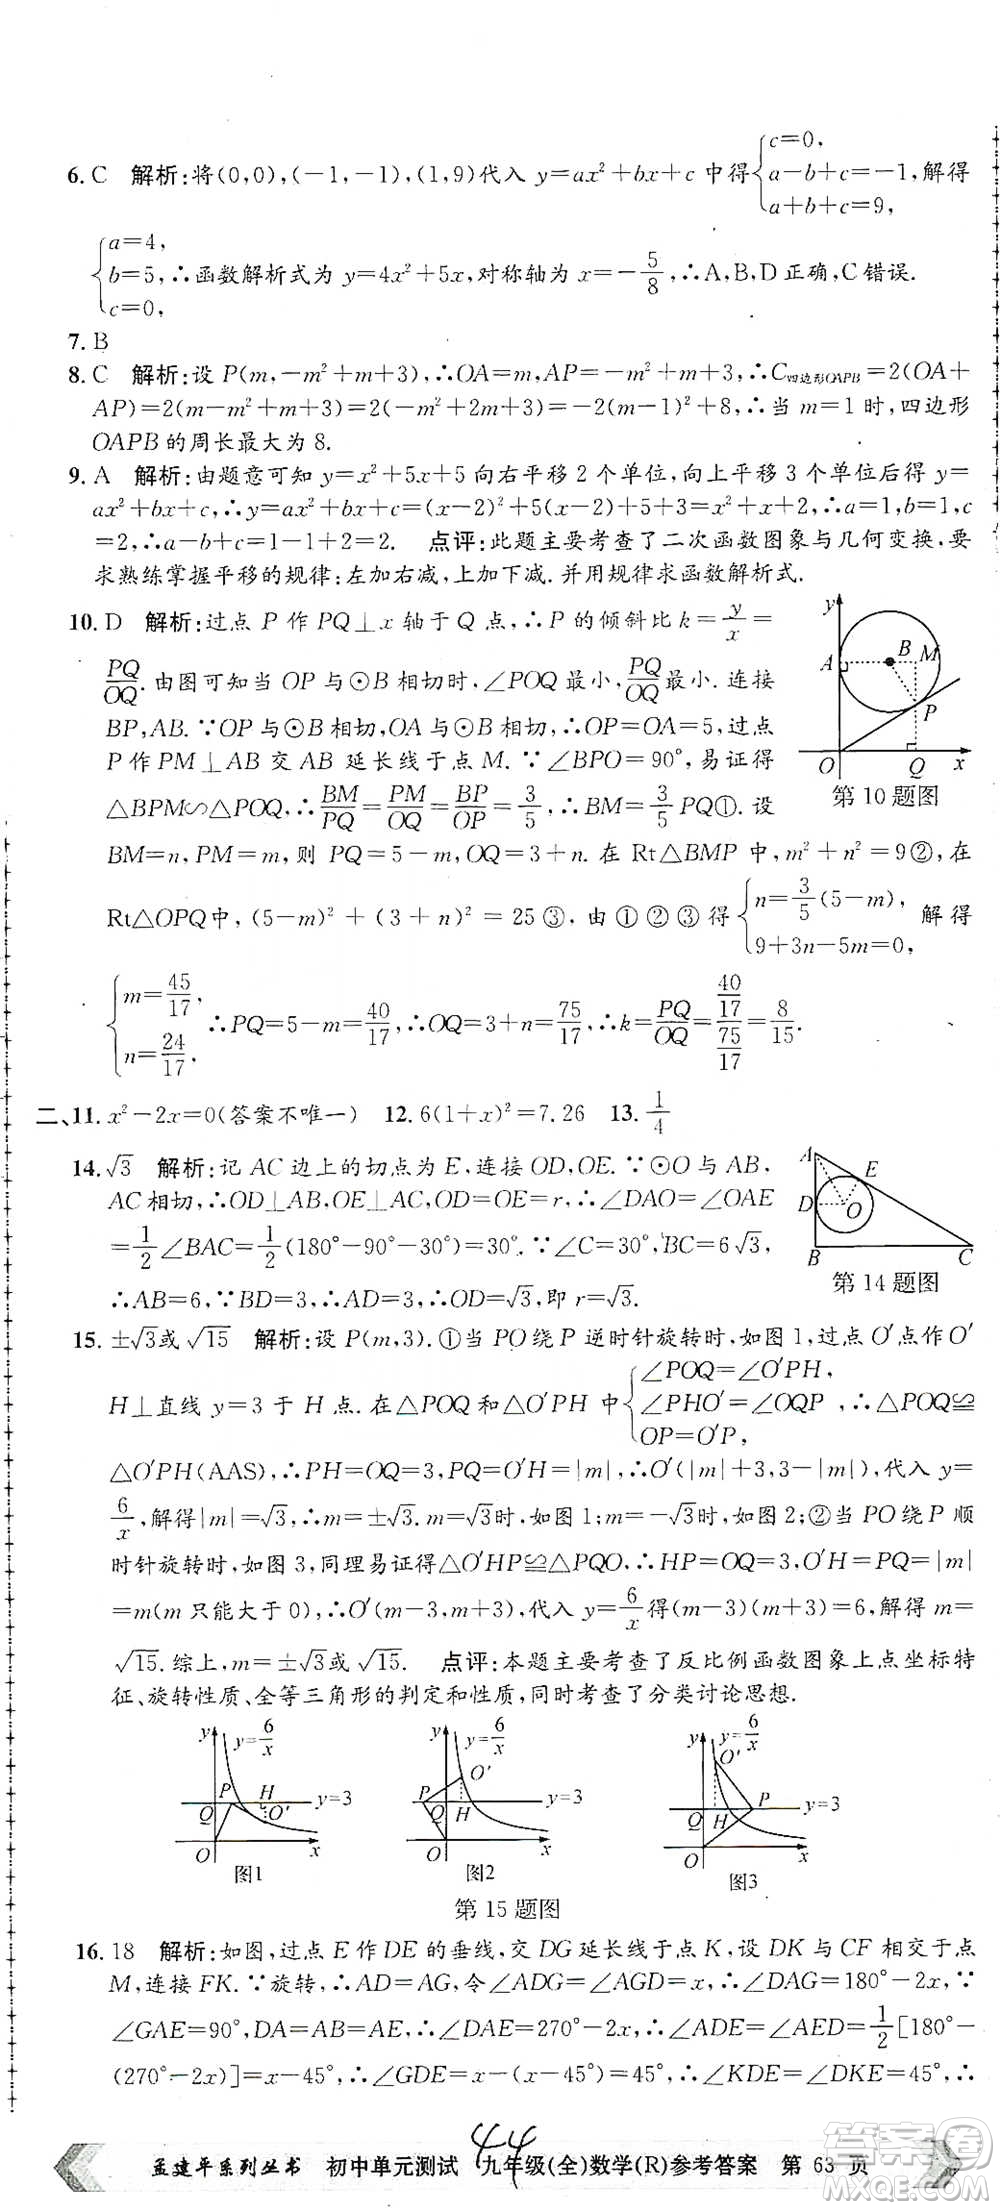 6. C 解析:将(0,0),(-1,-1),(1,9)代入 y=ax²+bx+c 中得{c=0, a-b+c=-1, a+b+c=9, 解得
{a=4, b=5, c=0, ∴函数解析式为 y=4x²+5x,对称轴为 x=-5/8,∴A,B,D 正确,C 错误.
7. B
8. C 解析:设 P(m,-m²+m+3),∴OA=m,AP=-m²+m+3,∴C四边形OAPB=2(OA+
AP)=2(m-m²+m+3)=2(-m²+2m+3)=-2(m-1)²+8,∴当 m=1 时,四边形
OAPB 的周长最大为 8.
9. A 解析:由题意可知 y=x²+5x+5 向右平移 2 个单位,向上平移 3 个单位后得 y=
ax²+bx+c,∴y=ax²+bx+c=(x-2)²+5(x-2)+5+3=x²+x+2,∴a=1,b=1,c
=2,∴a-b+c=1-1+2=2. 点评:此题主要考查了二次函数图象与几何变换,要
求熟练掌握平移的规律:左加右减,上加下减.并用规律求函数解析式.
10. D 解析:过点 P 作 PQ⊥x 轴于 Q 点,∴P 的倾斜比 k=y/x=
PQ/OQ.由图可知当 OP 与⊙B 相切时,∠POQ 最小,PQ/OQ最小.连接
BP,AB.∵OP 与⊙B 相切,OA 与⊙B 相切,∴OP=OA=5,过点
P 作 PM⊥AB 交 AB 延长线于点 M.∵∠BPO=90°,易证得
△BPM∽△POQ,∴BM/PQ=PM/OQ=BP/OP=3/5,∴BM=3/5PQ①.设
BM=n,PM=m,则 PQ=5-m,OQ=3+n.在 Rt△BMP 中,m²+n²=9②,在
Rt△OPQ中,(5-m)²+(3+n)²=25③,由①②③得{n=3/5(5-m), 9+3n-5m=0, 解得
{m=45/17, n=24/17. ∴PQ=5-m=40/17,∴OQ=3+n=75/17,∴k=PQ/OQ=(40/17)/(75/17)=8/15.
y A B M P O Q x
第10题图
二、11. x²-2x=0(答案不唯一) 12. 6(1+x)²=7.26 13. 1/4
14. √3 解析:记 AC 边上的切点为 E,连接 OD,OE.∵⊙O 与 AB,
AC 相切,∴OD⊥AB,OE⊥AC,OD=OE=r,∴∠DAO=∠OAE
=1/2∠BAC=1/2(180°-90°-30°)=30°.∵∠C=30°,BC=6√3,
∴AB=6,∵BD=3,∴AD=3,∴OD=√3,即 r=√3.
A E D O B C
第14题图
15. ±√3或√15 解析:设 P(m,3).①当 PO绕 P 逆时针旋转时,如图 1,过点 O′点作 O′
H⊥直线 y=3 于 H 点.在△POQ 和△O′PH 中{∠POQ=∠O′PH, ∠PHO′=∠OQP, OP=O′P, ∴△POQ≌
△O′PH(AAS),∴PH=OQ=3,PQ=O′H=|m|,∴O′(|m|+3,3-|m|),代入 y=
6/x,解得|m|=√3,∴m=±√3.m=√3时,如图 1;m=-√3时,如图 2;②当 PO绕 P 顺
时针旋转时,如图 3,同理易证得△O′HP≌△PQO,∴PH=OQ=3,O′H=PQ=|m|
=m(m 只能大于 0),∴O′(m-3,m+3),代入 y=6/x得(m-3)(m+3)=6,解得 m=
√15.综上,m=±√3或√15. 点评:本题主要考查了反比例函数图象上点坐标特
征、旋转性质、全等三角形的判定和性质,同时考查了分类讨论思想.
y y=6/x P H Q O′ y=3 O x 图1
y y=6/x O′ P Q H y=3 O x 图2
y y=6/x O′ P Q H y=3 O x 图3
第15题图
16. 18 解析:如图,过点 E 作 DE 的垂线,交 DG 延长线于点 K,设 DK 与 CF 相交于点
M,连接 FK.∵旋转,∴AD=AG,令∠ADG=∠AGD=x,∴∠DAG=180°-2x,∵
∠GAE=90°,DA=AB=AE,∴∠DAE=270°-2x,∴∠ADE=∠AED=1/2[180°-
(270°-2x)]=x-45°,∴∠GDE=x-(x-45°)=45°,∴∠KDE=∠DKE=45°,∴
44
孟建平系列丛书 初中单元测试 九年级(全)数学(R)参考答案 第 63 页
答案圈
MXQE.COM